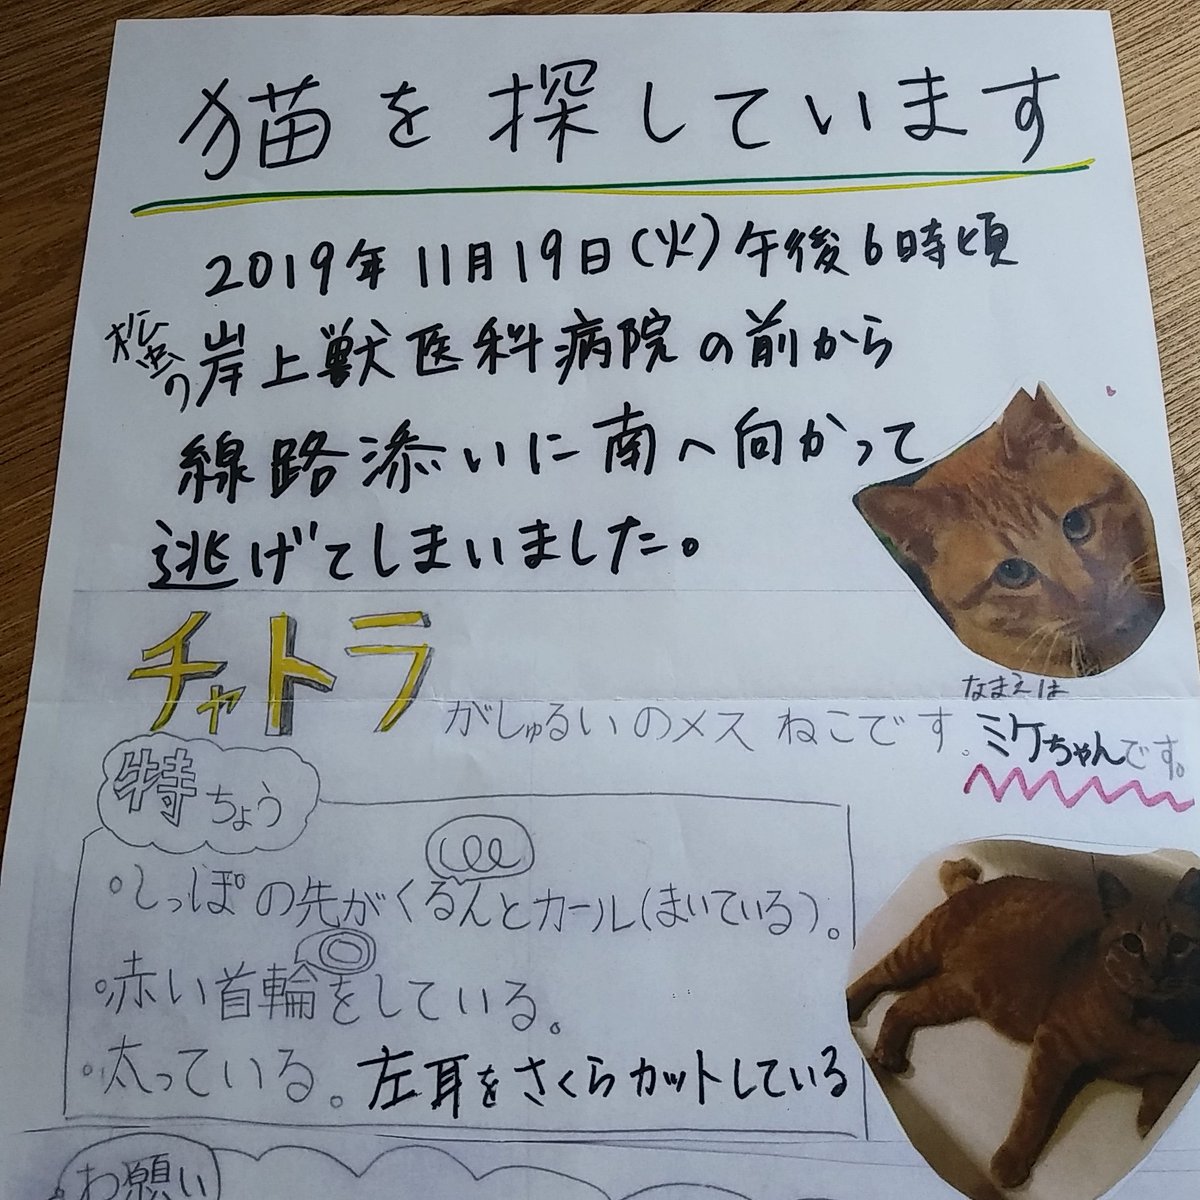 猫を探しています
2019年11月19日(火)午後6時頃
松虫の岸上獣医科病院の前から
線路添いに南へ向かって
逃げてしまいました。
チャトラがしゅるいのメスねこです。
なまえは
ミケちゃんです。
特ちょう
・しっぽの先がくるんとカール(まいている)。
・赤い首輪をしている。
・太っている。左耳をさくらカットしている
お願い